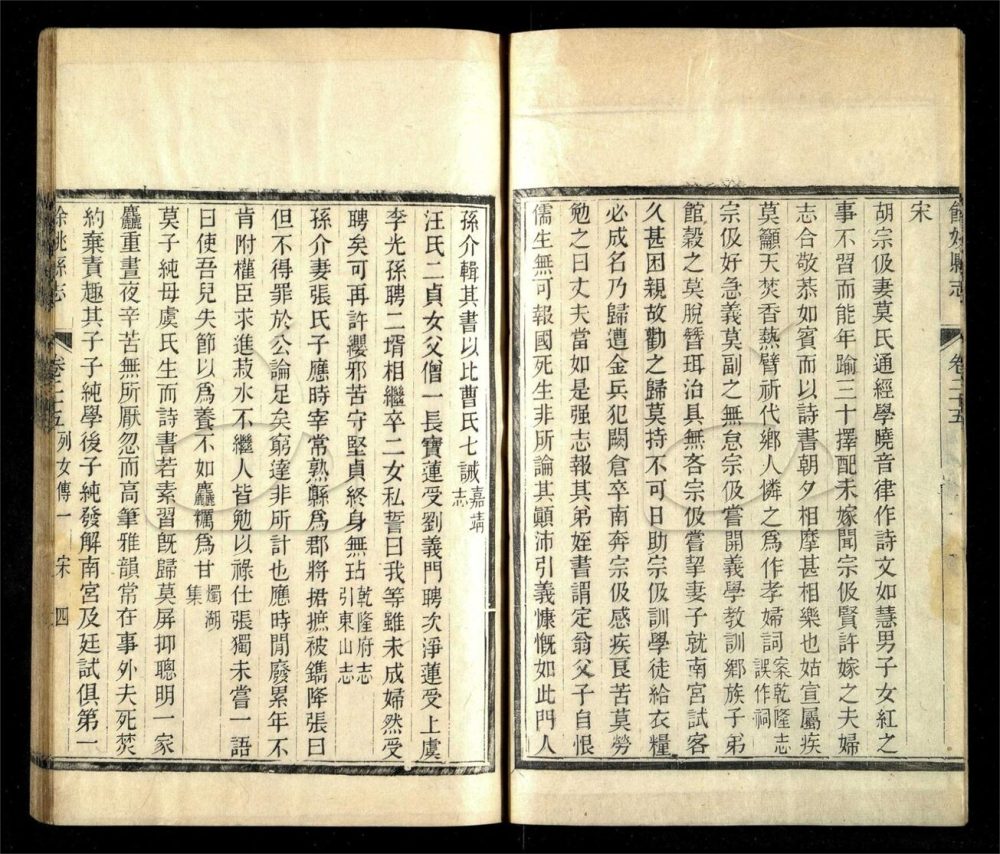 餘姚縣志
卷二十五
宋
胡宗伋妻莫氏通經學曉音律作詩文如慧男子女紅之
事不習而能年踰三十擇配未嫁聞宗伋賢許嫁之夫婦
志合敬恭如賓而以詩書朝夕相摩甚相樂也姑宣屬疾
莫籲天焚香爇臂祈代鄉人憐之爲作孝婦詞案乾隆志誤作祠
宗伋好急義莫副之無怠宗伋嘗開義學教訓鄉族子弟
館穀之莫脫簪珥治具無吝宗伋嘗挈妻子就南宮試客
久甚困親故勸之歸莫持不可日助宗伋訓學徒給衣糧
必成名乃歸遭金兵犯闕倉卒南奔宗伋感疾艮苦莫勞
勉之曰丈夫當如是强志報其弟姪書謂定翁父子自恨
儒生無可報國死生非所論其顚沛引義慷慨如此門人
孫介輯其書以比曹氏七誡嘉靖志
汪氏二貞女父僧一長寶蓮受劉義門聘次淨蓮受上虞
李光孫聘二壻相繼卒二女私誓曰我等雖未成婦然受
聘矣可再許纓邪苦守堅貞終身無玷乾隆府志引東山志
孫介妻張氏子應時宰常熟縣爲郡將捃摭被鐫降張曰
但不得罪於公論足矣窮達非所計也應時閒廢累年不
肯附權臣求進菽水不繼人皆勉以祿仕張獨未嘗一語
曰使吾兒失節以爲養不如麤糲爲甘燭湖集
莫子純母虞氏生而詩書若素習旣歸莫屏抑聰明一家
麤重晝夜辛苦無所厭忽而高筆雅韻常在事外夫死焚
約棄責趣其子子純學後子純發解南宮及廷試俱第一
餘姚縣志
卷二十五 列女傳一 宋 四